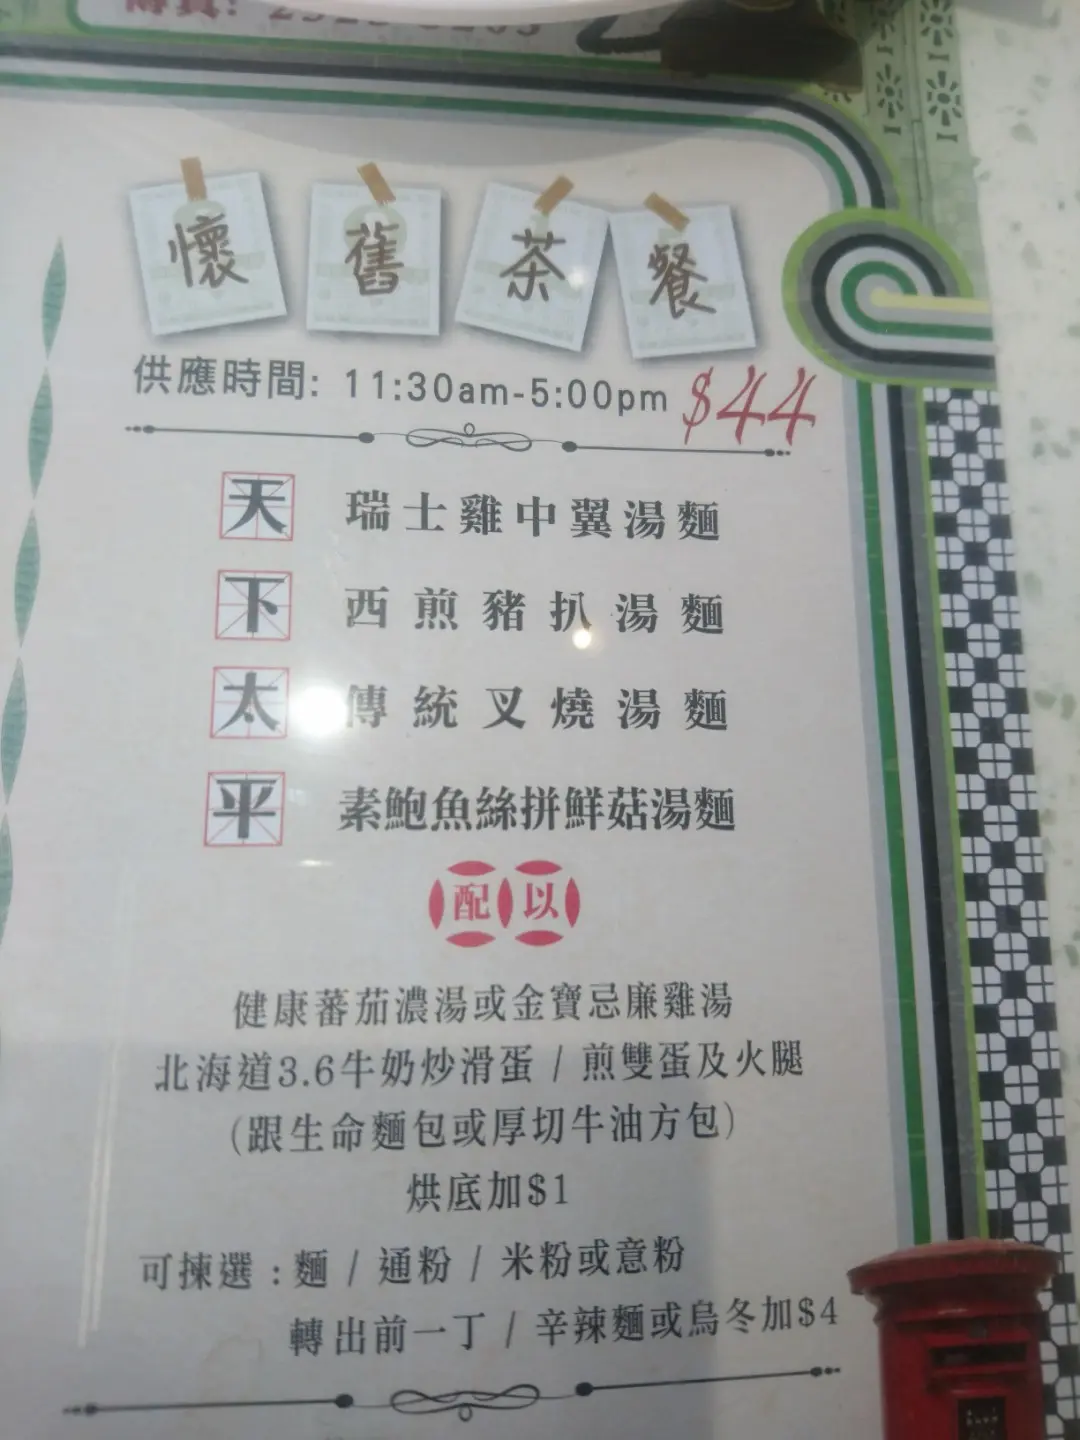 懷舊茶餐
供應時間: 11:30am-5:00pm $44
天 瑞士雞中翼湯麵
下 西煎豬扒湯麵
太 傳統叉燒湯麵
平 素鮑魚絲拼鮮菇湯麵
配以
健康蕃茄濃湯或金寶忌廉雞湯
北海道3.6牛奶炒滑蛋 / 煎雙蛋及火腿
(跟生命麵包或厚切牛油方包)
烘底加$1
可揀選 : 麵 / 通粉 / 米粉或意粉
轉出前一丁 / 辛辣麵或烏冬加$4